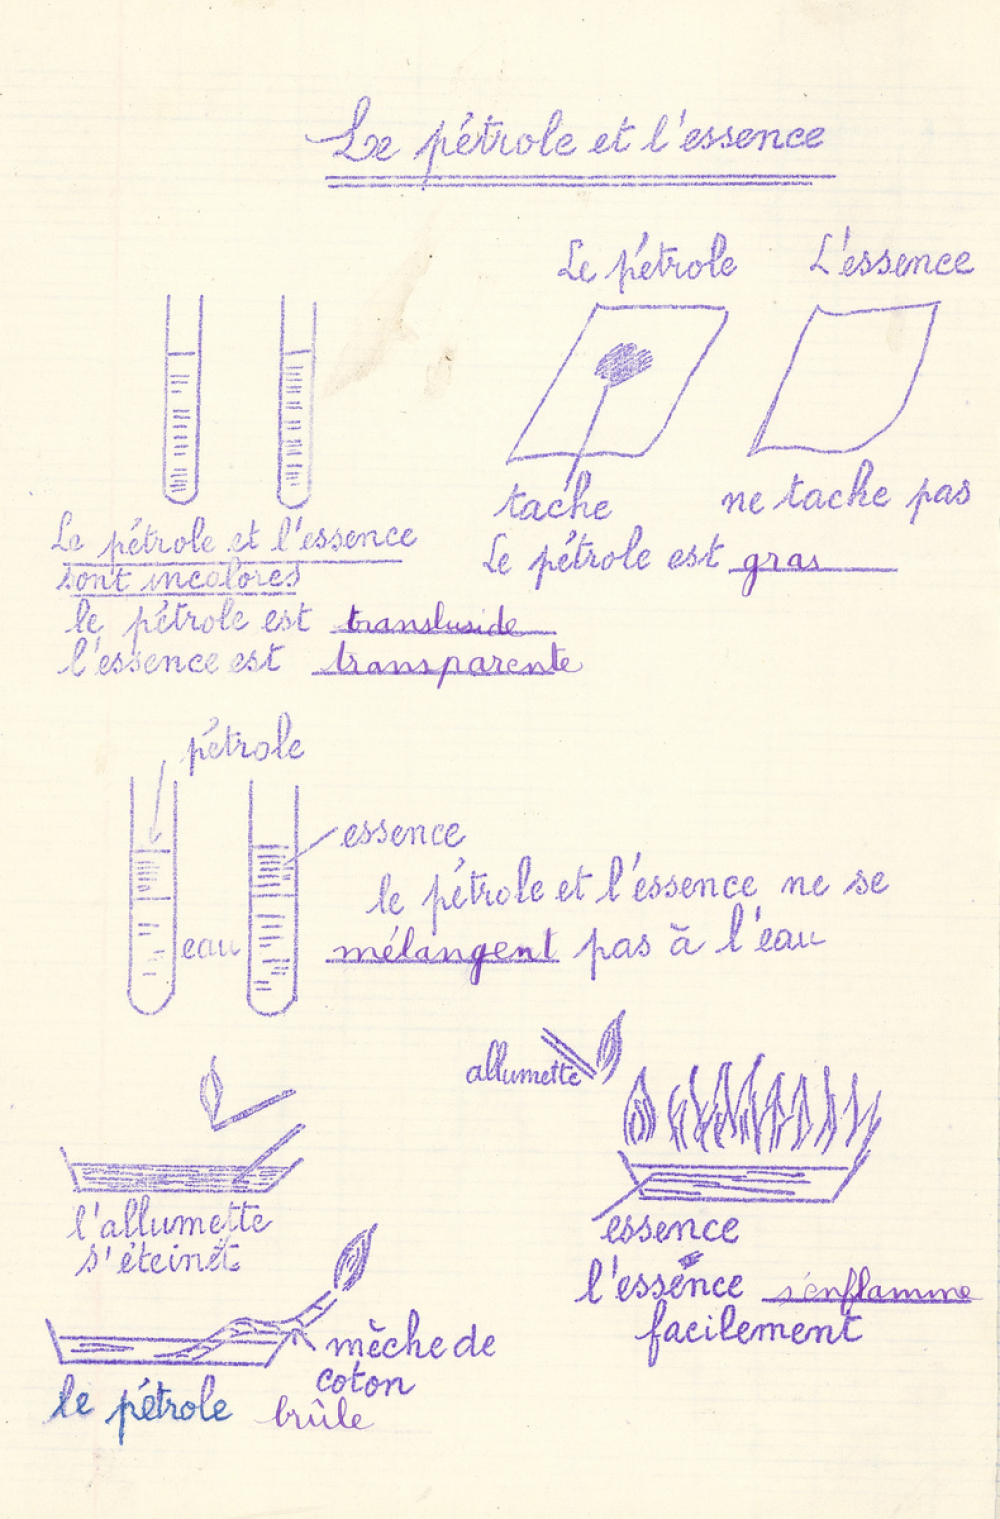 Le pétrole et l'essence
Le pétrole
L'essence
tache
ne tache pas
Le pétrole est gras
Le pétrole et l'essence
sont incolores
le pétrole est transluside
l'essence est transparente
pétrole
essence
eau
le pétrole et l'essence ne se
mélangent pas à l'eau
allumette
l'allumette
s'éteinet
essence
l'essence s'enflamme
facilement
mèche de
coton
le pétrole brûle